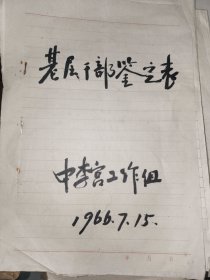 基层干部鉴定表
中李宫工作组
1966.7.15.